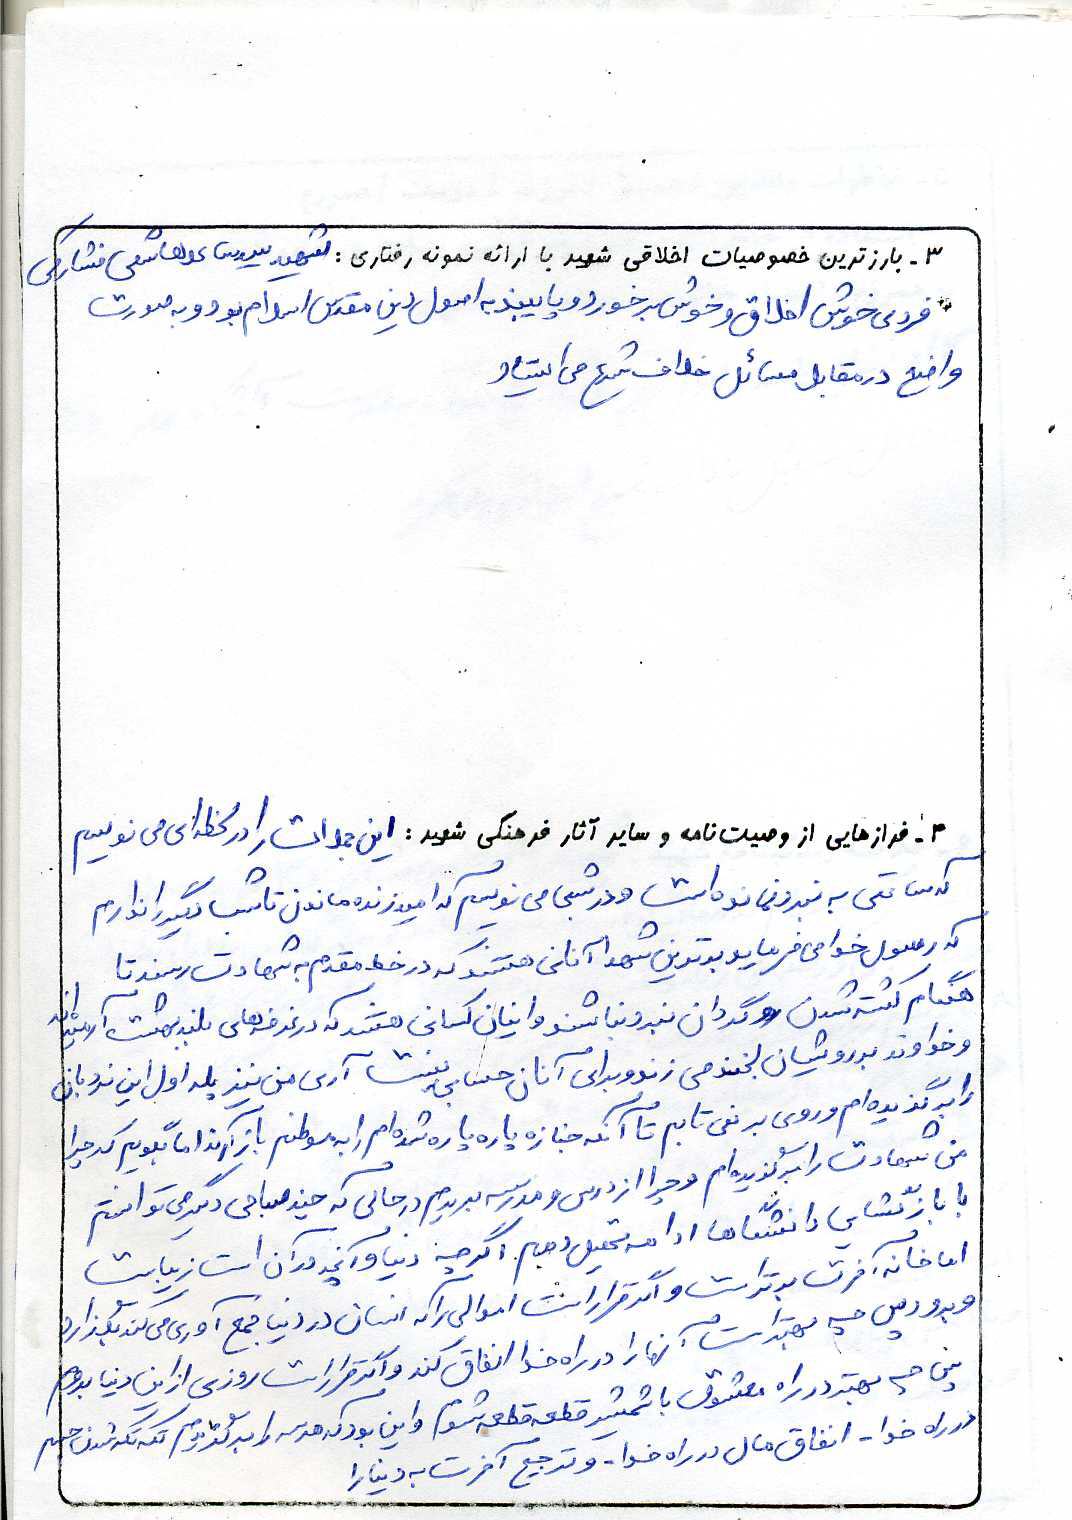 ۳ - بارزترین خصوصیات اخلاقی شهید با ارائه نمونه رفتاری : شهید سیدرضا هاشمی فشارکی
فردی خوش اخلاق و خوش برخورد و پایبند به اصول دین مقدس اسلام بود و به صورت
واضح در مقابل مسائل خلاف شرع می ایستاد
۴ - فرازهایی از وصیت نامه و سایر آثار فرهنگی شهید : این جملات را در لحظه ای می نویسم
که ساعتی به نبرد نمانده است و در شبی می نویسم که امید زنده ماندن تا شب دیگر را ندارم
که رسول خدا می فرماید برترین شهدا آنانی هستند که در خط مقدم به شهادت رسند تا
هنگام کشته شدن رو گردان نبرد نباشند و اینان کسانی هستند که در غرفه های بلند بهشت آرمیده اند
و خداوند بر رویشان لبخند می زند و برای آنان حسابی نیست آری من نیز پله اول این نردبان
را برگزیده ام و روی بر نمی تابم تا آنکه جنازه پاره پاره شده ام را به موطنم باز آرند اما بگویم که چرا
من شهادت را برگزیده ام و چرا از درس و مدرسه بریدم در حالی که چند صباحی دیگر می توانستم
با بازگشایی دانشگاها ادامه تحصیل دهم . اگر چه دنیا و آنچه در آن است زیباست
اما خانه آخرت برتر است و اگر قرار است اموالی را که انسان در دنیا جمع آوری می کند بگذارد
و برود پس چه بهتر است آنها را در راه خدا انفاق کند و اگر قرار است روزی از این دنیا بروم
پس چه بهتر در راه معشوق با شمشیر قطعه قطعه شوم و این بود که مدرسه را برگزیدم تکه تکه شدن جسم
در راه خدا - انفاق مال در راه خدا - و ترجیح آخرت به دنیا را